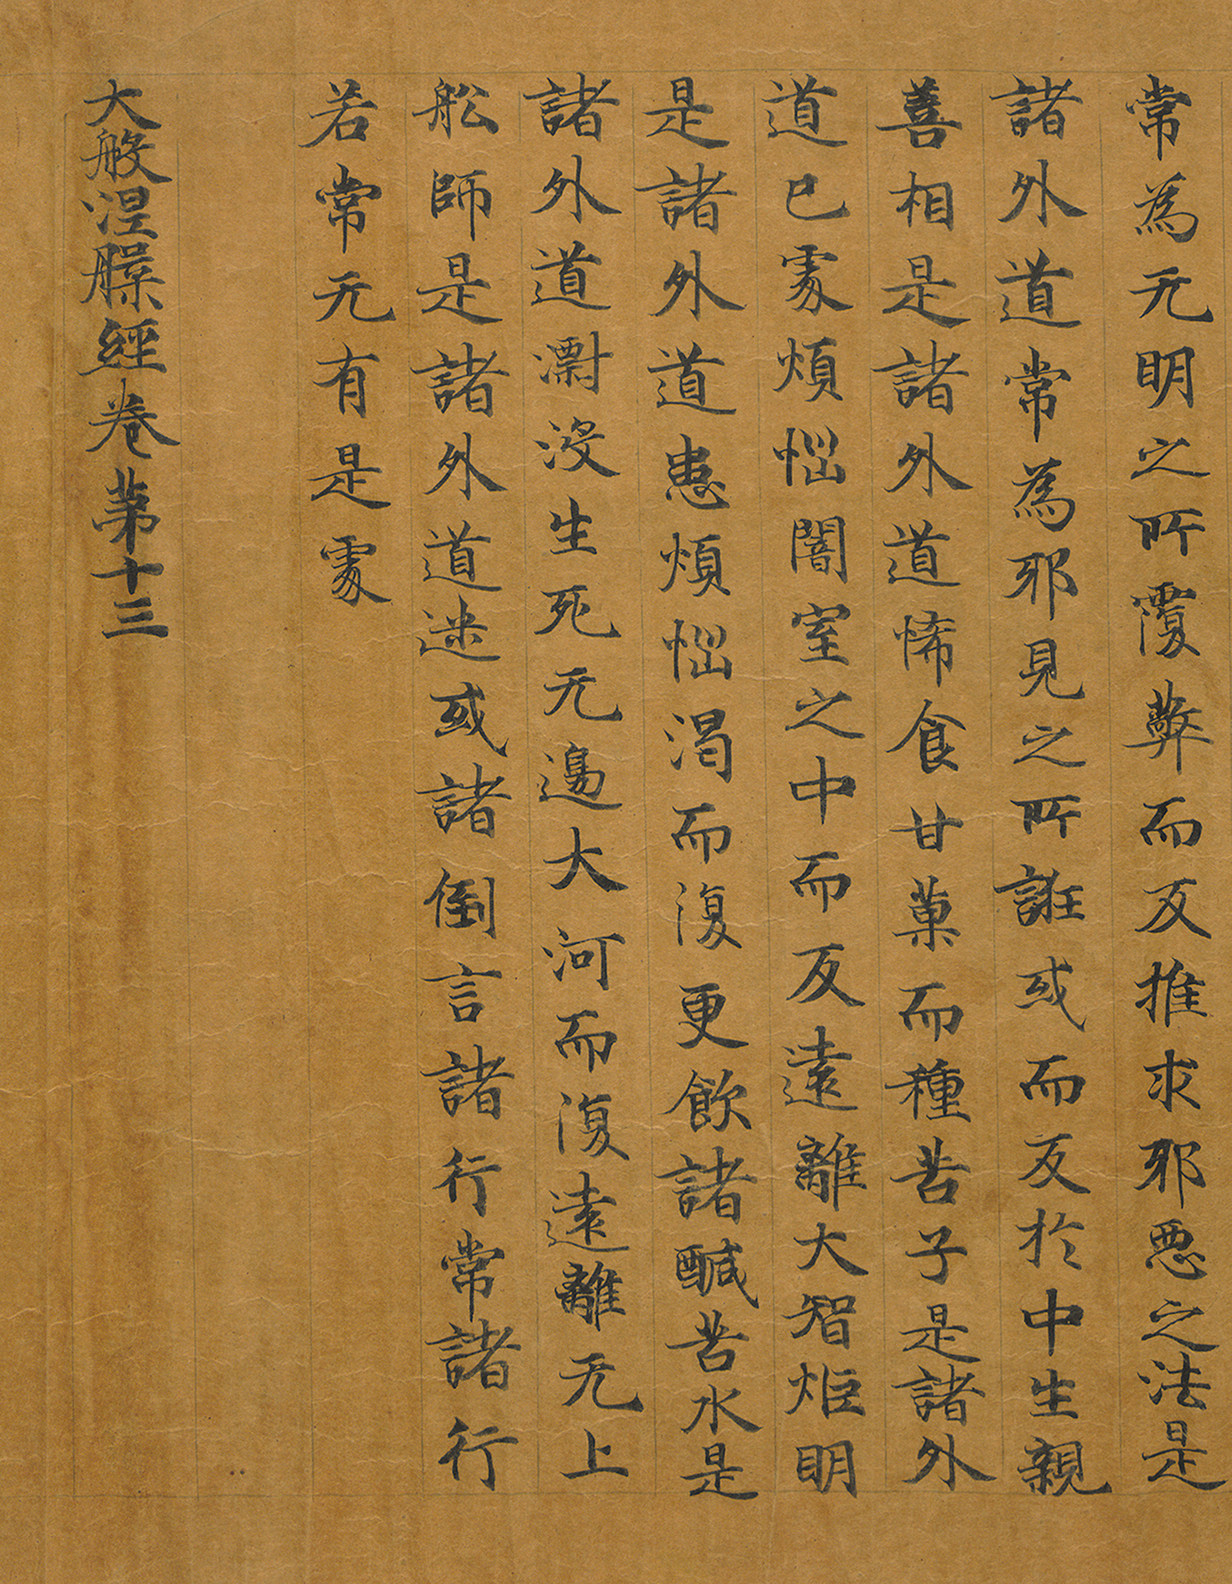 常為无明之所覆蔽而反推求邪惡之法是
諸外道常為邪見之所誑或而反於中生親
善相是諸外道悕食甘菓而種苦子是諸外
道已處煩惱闇室之中而反遠離大智炬明
是諸外道患煩惱渴而復更飲諸醎苦水是
諸外道漂沒生死无邊大河而復遠離无上
舩師是諸外道迷或諸倒言諸行常諸行
若常无有是處
大般涅槃經卷第十三